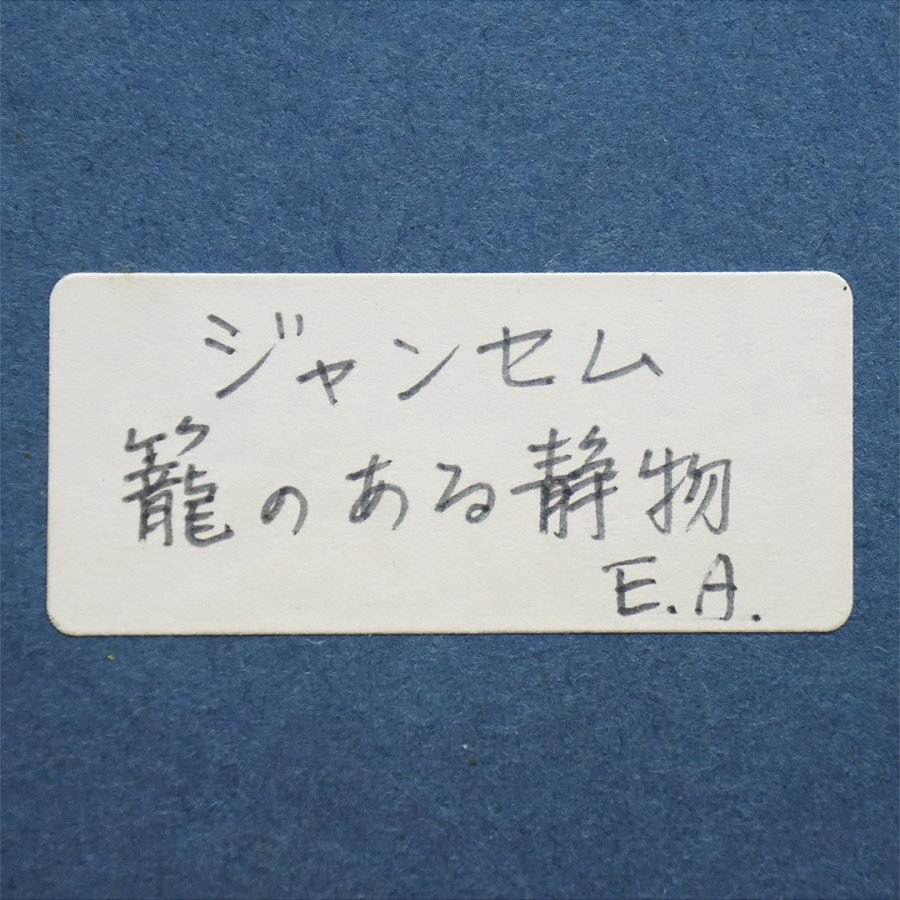 ジャンセム
籠のある静物
E.A.